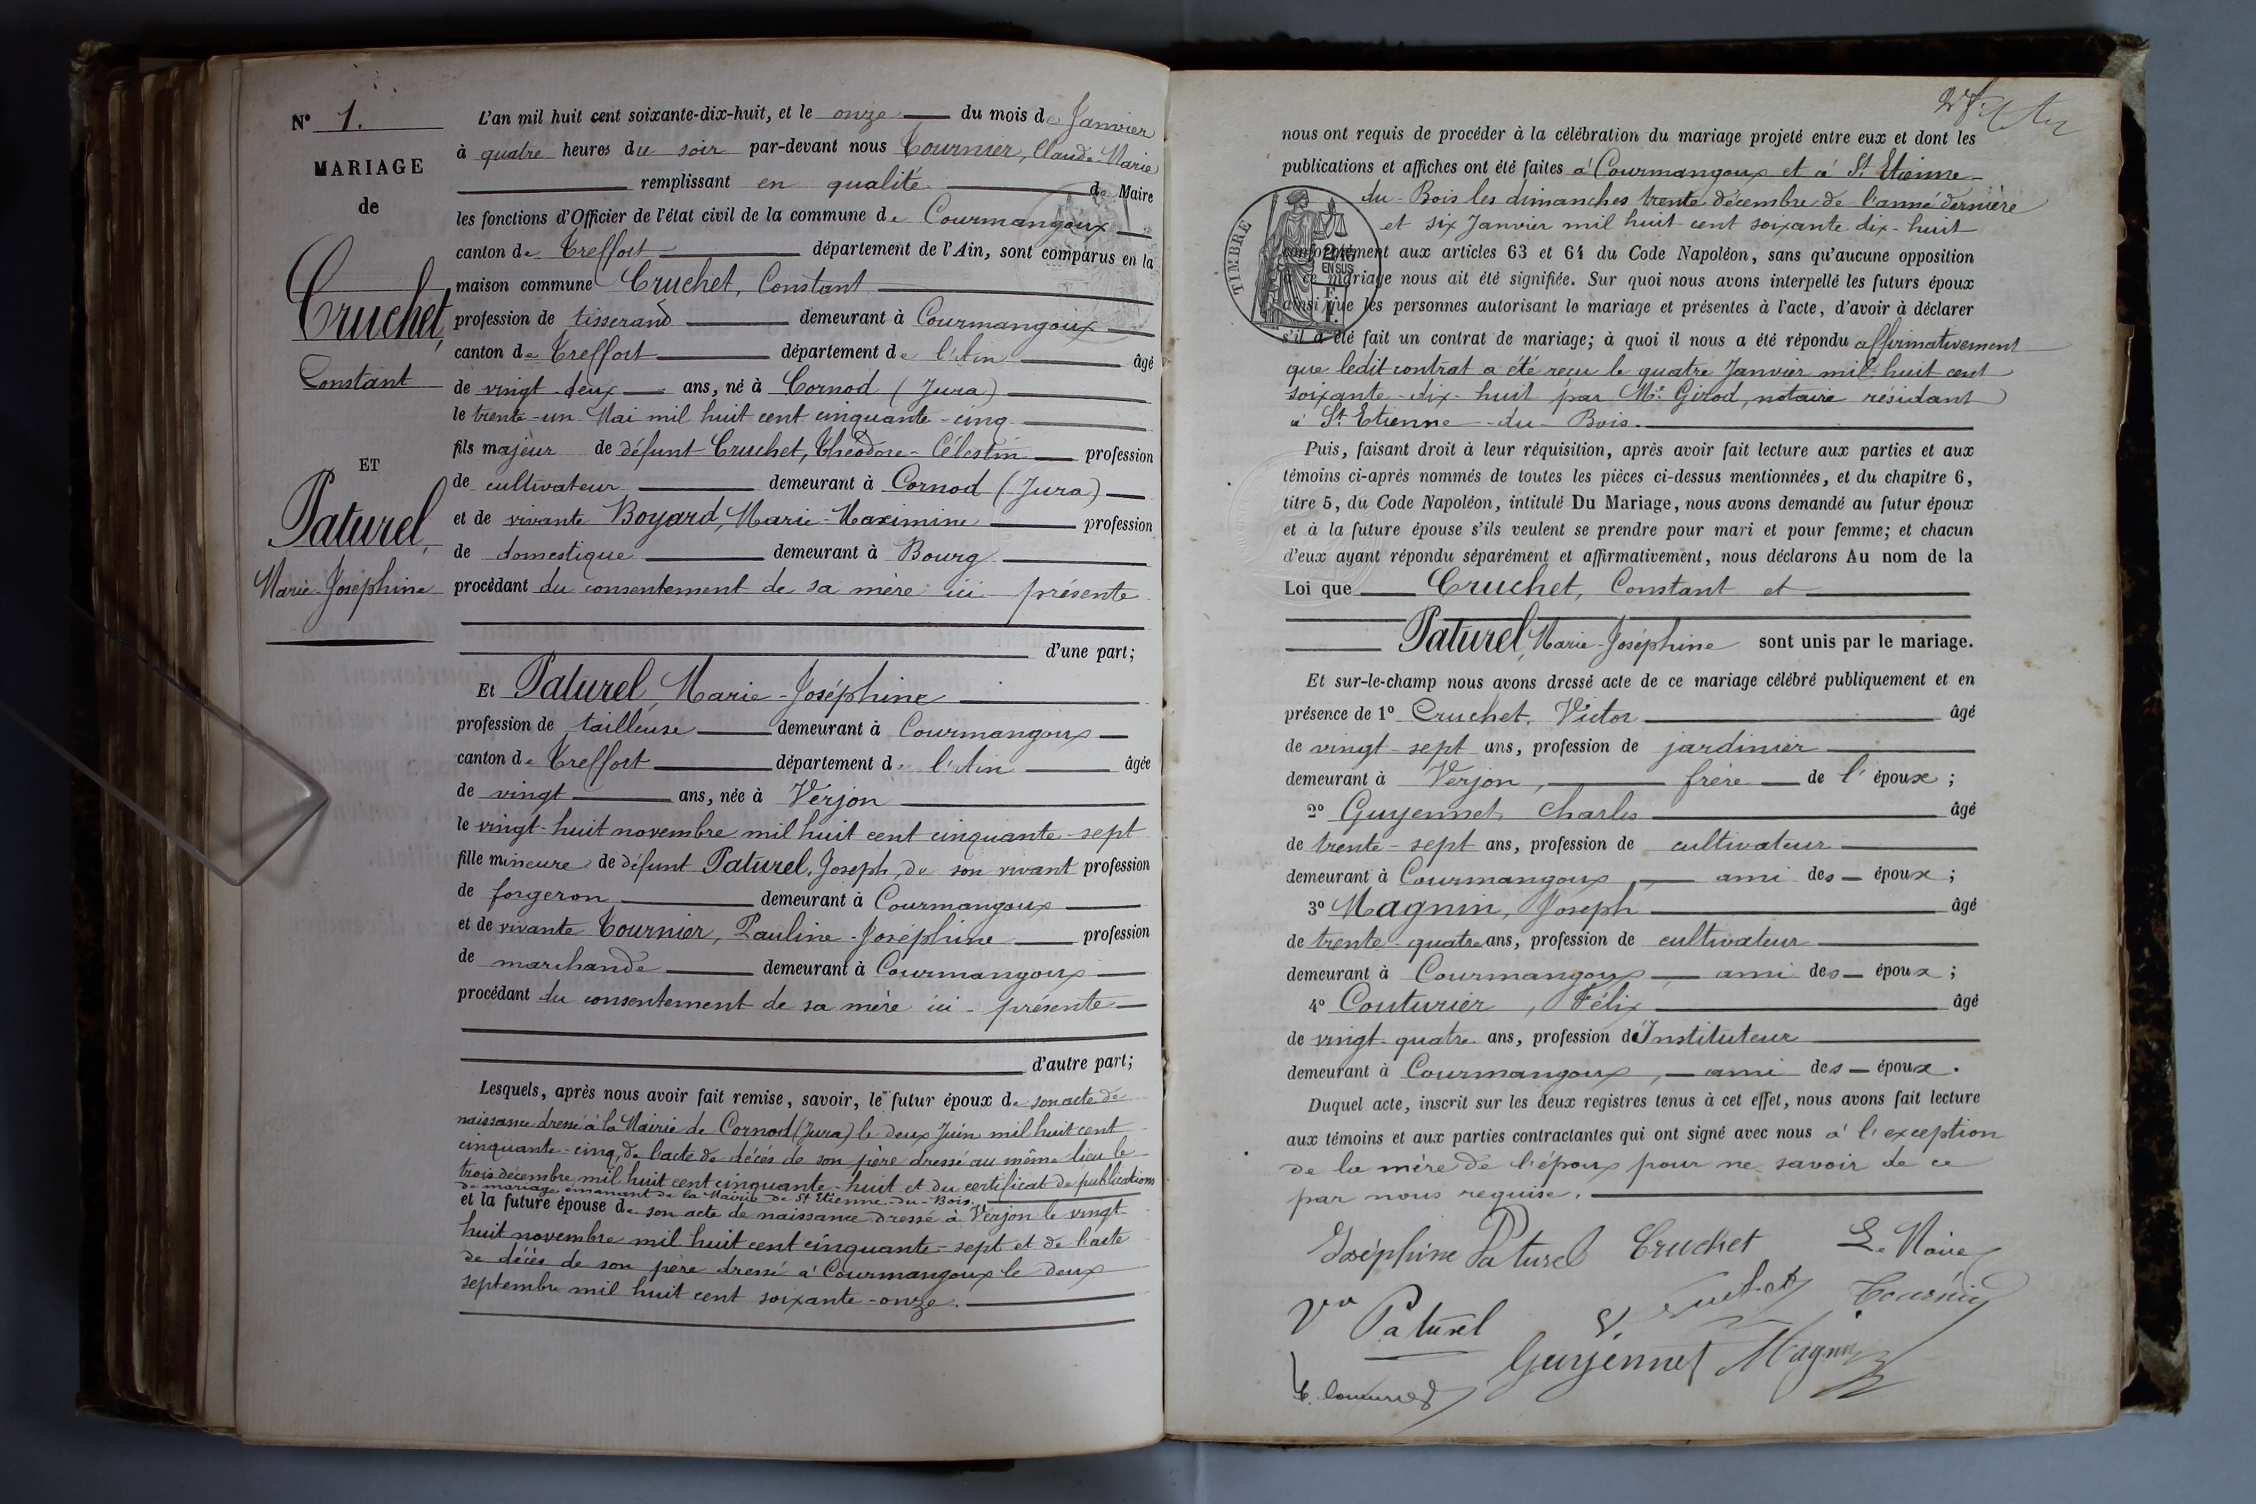 N° 1.
MARIAGE
de
Cruchet,
Constant
ET
Paturel,
Marie-Joséphine
L'an mil huit cent soixante-dix-huit, et le onze du mois de Janvier
à quatre heures du soir par-devant nous Tournier, Claude-Marie
remplissant en qualité de Maire
les fonctions d'Officier de l'état civil de la commune de Courmangoux
canton de Treffort département de l'Ain, sont comparus en la
maison commune Cruchet, Constant
profession de tisserand demeurant à Courmangoux
canton de Treffort département de l'Ain âgé
de vingt-deux ans, né à Cornod (Jura)
le trente-un Mai mil huit cent cinquante-cinq
fils majeur de défunt Cruchet, Théodore-Célestin profession
de cultivateur demeurant à Cornod (Jura)
et de vivante Boyard, Marie-Maximine profession
de domestique demeurant à Bourg
procédant du consentement de sa mère ici présente
d'une part;
Et Paturel, Marie-Joséphine
profession de tailleuse demeurant à Courmangoux
canton de Treffort département de l'Ain âgée
de vingt ans, née à Verjon
le vingt-huit novembre mil huit cent cinquante-sept
fille mineure de défunt Paturel, Joseph, de son vivant profession
de forgeron demeurant à Courmangoux
et de vivante Tournier, Pauline-Joséphine profession
de marchande demeurant à Courmangoux
procédant du consentement de sa mère ici-présente
d'autre part;
Lesquels, après nous avoir fait remise, savoir, le futur époux de son acte de
naissance dressé à la Mairie de Cornod (Jura) le deux Juin mil huit cent
cinquante-cinq, de l'acte de décès de son père dressé au même lieu le
trois décembre mil huit cent cinquante-huit et du certificat de publications
de mariage émanant de la Mairie de St Etienne-du-Bois,
et la future épouse de son acte de naissance dressé à Verjon le vingt-
huit novembre mil huit cent cinquante-sept et de l'acte
de décès de son père dressé à Courmangoux le deux
septembre mil huit cent soixante-onze.
nous ont requis de procéder à la célébration du mariage projeté entre eux et dont les
publications et affiches ont été faites à Courmangoux et à St Etienne-
du-Bois les dimanches trente décembre de l'année dernière
et six Janvier mil huit cent soixante-dix-huit
TIMBRE
2/10
EN SUS
conformément aux articles 63 et 64 du Code Napoléon, sans qu'aucune opposition
à ce mariage nous ait été signifiée. Sur quoi nous avons interpellé les futurs époux
ainsi que les personnes autorisant le mariage et présentes à l'acte, d'avoir à déclarer
s'il a été fait un contrat de mariage; à quoi il nous a été répondu affirmativement
que ledit contrat a été reçu le quatre Janvier mil huit cent
soixante-dix-huit par Me Girod, notaire résidant
à St Etienne-du-Bois.
Puis, faisant droit à leur réquisition, après avoir fait lecture aux parties et aux
témoins ci-après nommés de toutes les pièces ci-dessus mentionnées, et du chapitre 6,
titre 5, du Code Napoléon, intitulé Du Mariage, nous avons demandé au futur époux
et à la future épouse s'ils veulent se prendre pour mari et pour femme; et chacun
d'eux ayant répondu séparément et affirmativement, nous déclarons Au nom de la
Loi que Cruchet, Constant et
Paturel, Marie-Joséphine sont unis par le mariage.
Et sur-le-champ nous avons dressé acte de ce mariage célébré publiquement et en
présence de 1° Cruchet, Victor âgé
de vingt-sept ans, profession de jardinier
demeurant à Verjon, frère de l'époux;
2° Guyennet Charles âgé
de trente-sept ans, profession de cultivateur
demeurant à Courmangoux, ami des époux;
3° Magnin, Joseph âgé
de trente-quatre ans, profession de cultivateur
demeurant à Courmangoux, ami des époux;
4° Couturier, Félix âgé
de vingt-quatre ans, profession d'Instituteur
demeurant à Courmangoux, ami des époux.
Duquel acte, inscrit sur les deux registres tenus à cet effet, nous avons fait lecture
aux témoins et aux parties contractantes qui ont signé avec nous à l'exception
de la mère de l'époux pour ne savoir de ce
par nous requise.
Joséphine Paturel Cruchet Le Maire
Vve Paturel Tournier
Guyennet Magnin